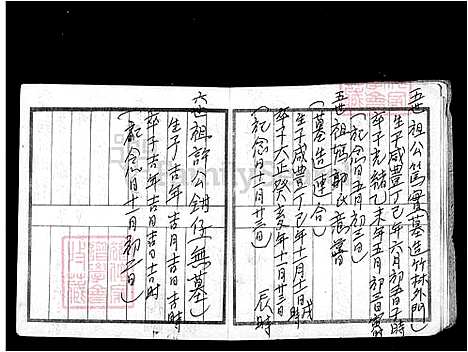 五世祖公篤實墓造竹林外門
生于咸豐丁巳年六月初五日子時
卒于光緒乙未年五月初三日寅時
(記念日五月初三日)
五世祖媽郭氏
(墓造連合)
生于咸豐丁巳年十月十日戌時
卒于大正癸亥年十一月廿三日辰時
(記念日十一月廿三日)
六世祖許公鉗任無墓
生于吉年吉月吉日吉時
卒于吉年吉月吉日吉時
(記念日十一月初二日)